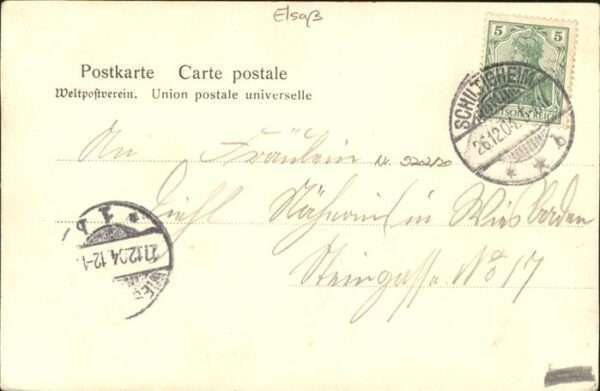 Elsaß
5 5
DEUTSCHES REICH
SCHILTIGHEIM
26.12.04
b
Postkarte Carte postale
Weltpostverein. Union postale universelle
An Fräulein
Diehl Näherin Wiesbaden
Steingasse No 17
1 b
12.04.12-1